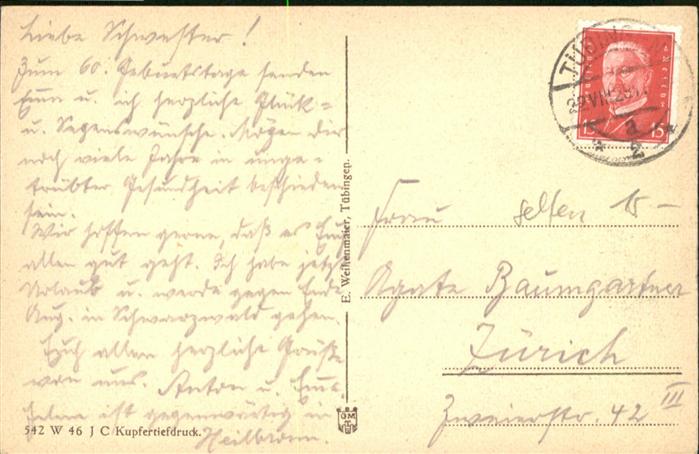 Liebe Schwester!
Zum 60. Geburtstage senden
Emm u. ich herzliche Glück-
u. Segenswünsche. Mögen dir
noch viele Jahre in unge-
trübter Gesundheit beschieden
sein.
Wir hoffen gerne, daß es Euch
allen gut geht. Ich habe jetzt
Urlaub u. werde gegen Ende
Aug. in Schwarzwald gehen.
Euch allen herzliche Grüße
von uns. Anton u. Emm.
ist gegenwärtig in
Heilbronn.
542 W 46 J C Kupfertiefdruck.
E. Weihenmaier, Tübingen.
TÜBING
15
a
* 2 *
Frau selten 15 -
Agate Baumgartner
Zürich
Zweierstr. 42 III